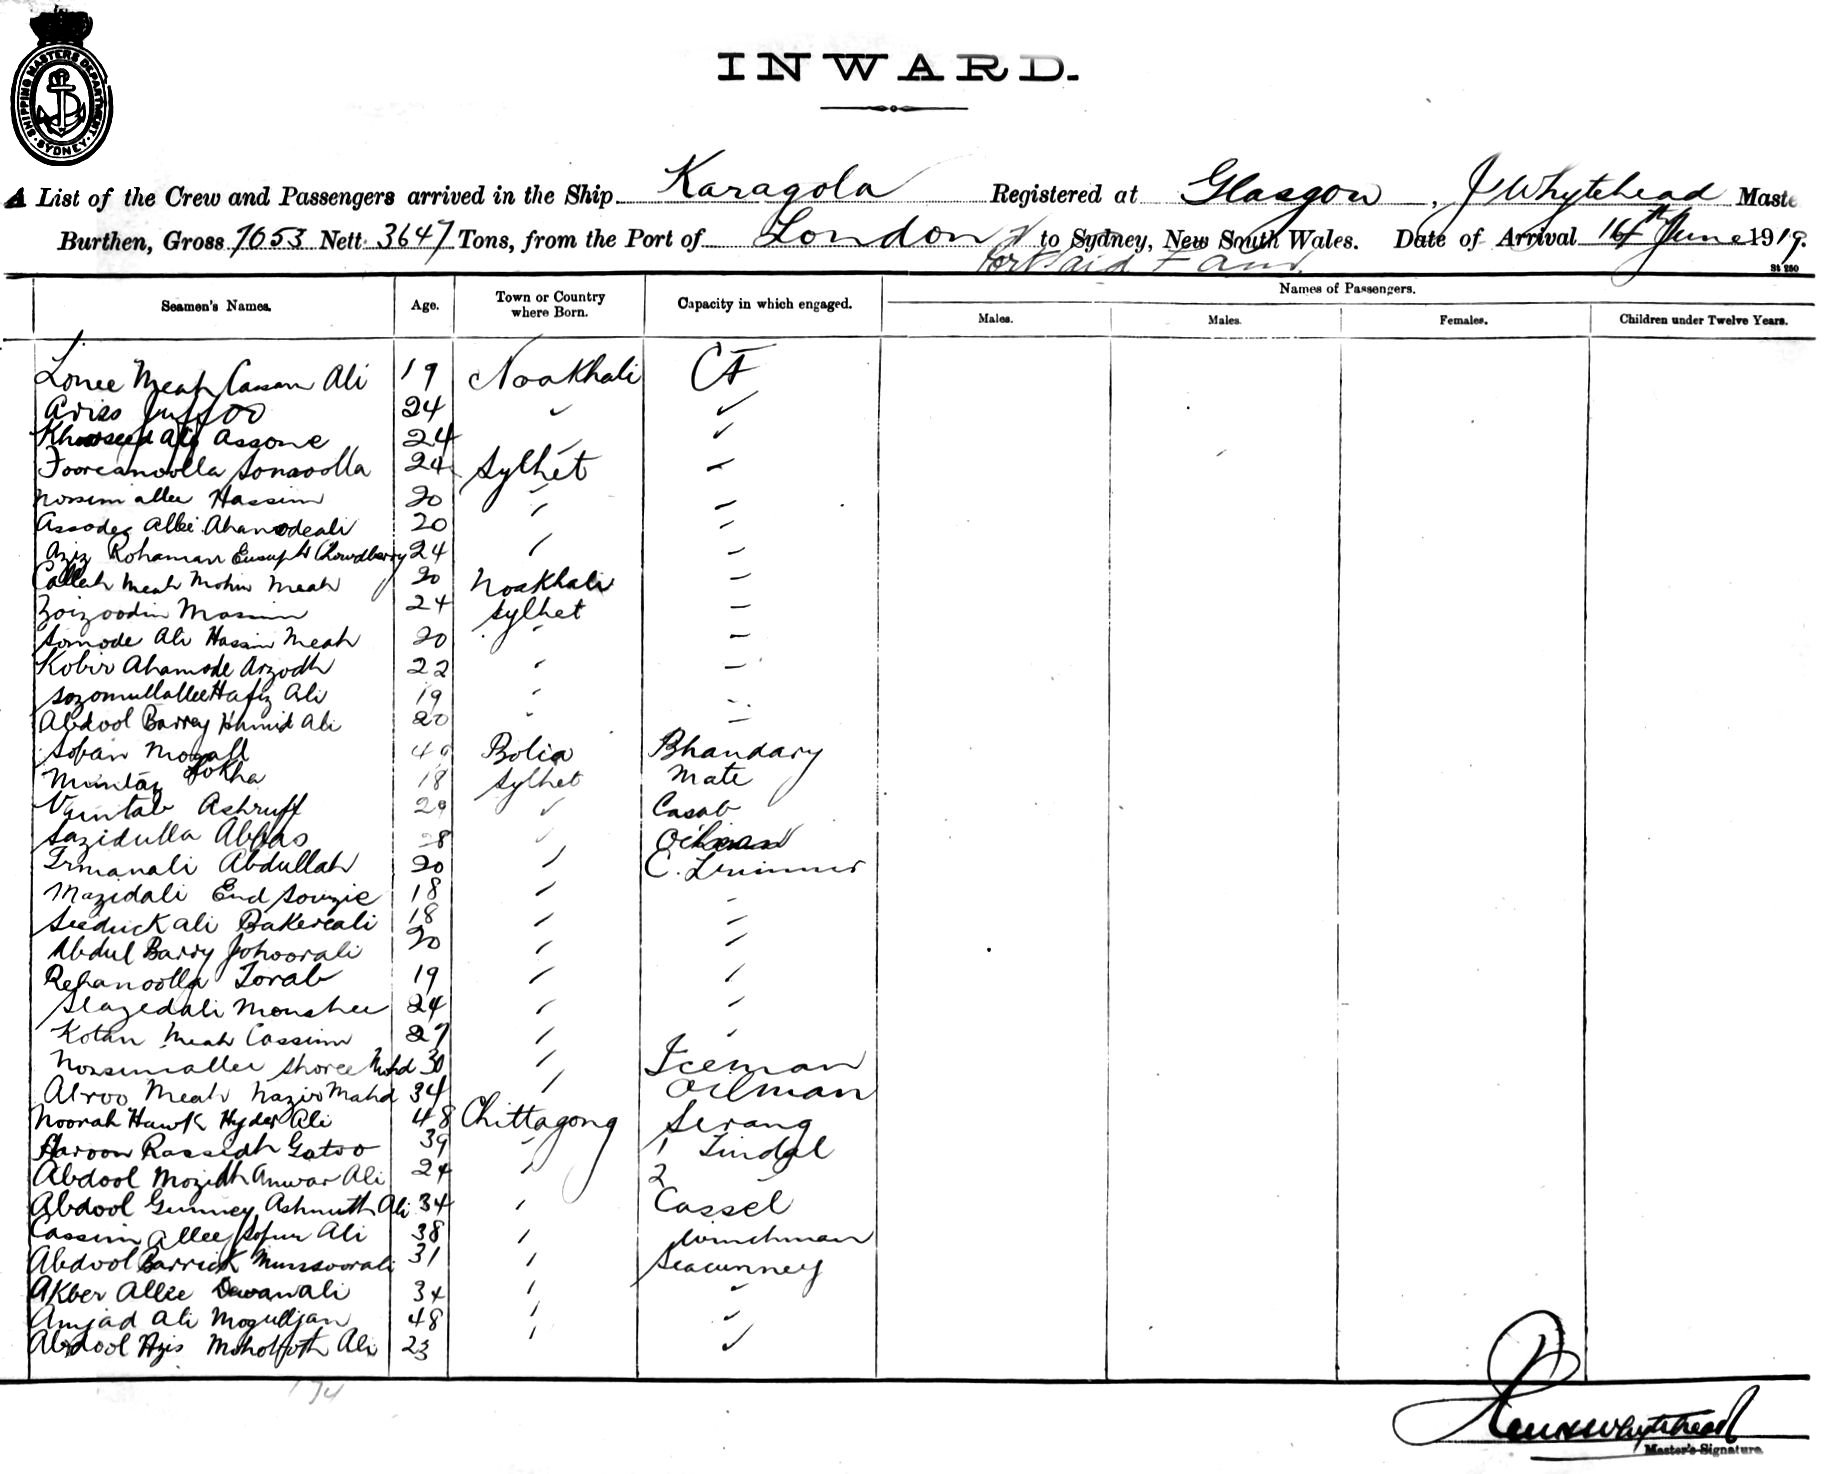 SHIPPING MASTERS DEPARTMENT
SYDNEY
INWARD.
A List of the Crew and Passengers arrived in the Ship Karagola Registered at Glasgow, J Whytehead Maste
Burthen, Gross 7053 Nett 3647 Tons, from the Port of London to Sydney, New South Wales. Date of Arrival 16th June 1919.
Port Said
St 280
Seamen's Names. Age. Town or Country where Born. Capacity in which engaged. Names of Passengers.
Males. Males. Females. Children under Twelve Years.
Lonee Meah Cassam Ali 19 Noakhali
Ariss Juffoo 24
Khorseed Ali Assone 24
Fooreanoolla Sonaoolla 24 Sylhet
Nossim allee Hassim 20
Assodeg Allee Ahamodeali 20
Aziz Rohaman Eusuph Chowdberry 24
Callah Meah Mohim Meah 20 Noakhali
Zoizoodin Massim 24 Sylhet
Somode Ali Hassim Meah 20
Kobir Ahamode Arzodh 22
Sozomullallee Hafiz Ali 19
Abdool Barrey Hamid Ali 20
Soban Mogall Bolia Bhandary
Mumtaz Sokha 18 Sylhet Mate
Ashruff 29 Casab
Sazidulla Abbas Oilman
Irmanali Abdullah 20 C. Trimmer
Mazidali End Souzie 18
Seeduck ali Bakereali 18
Abdul Barry Johoorali 20
Rehanoolla Torab 19
Seazedali Monshee 24
Kotan Meah Cassim 27
Nossimallee Shoree Mohd 30 Iceman
Atroo Meah Nazir Mahd 34 Oilman
Noorah Hawk Hyder Ali 48 Chittagong Serang
Haroon Rasseedh Gatoo 39 1 Tindal
Abdool Mozidh Anwar Ali 24 2
Abdool Gunney Ashmuth Ali 34 Cassel
Cassim Allee Sofur Ali 38 Winchman
Abdool Barrick Munsoorali 31 Seacunney
Akber Allee Dewanali 34
Amjad Ali Moguljan 48
Abdool Azis Moholfoth Ali 23
Whytehead
Master's Signature.